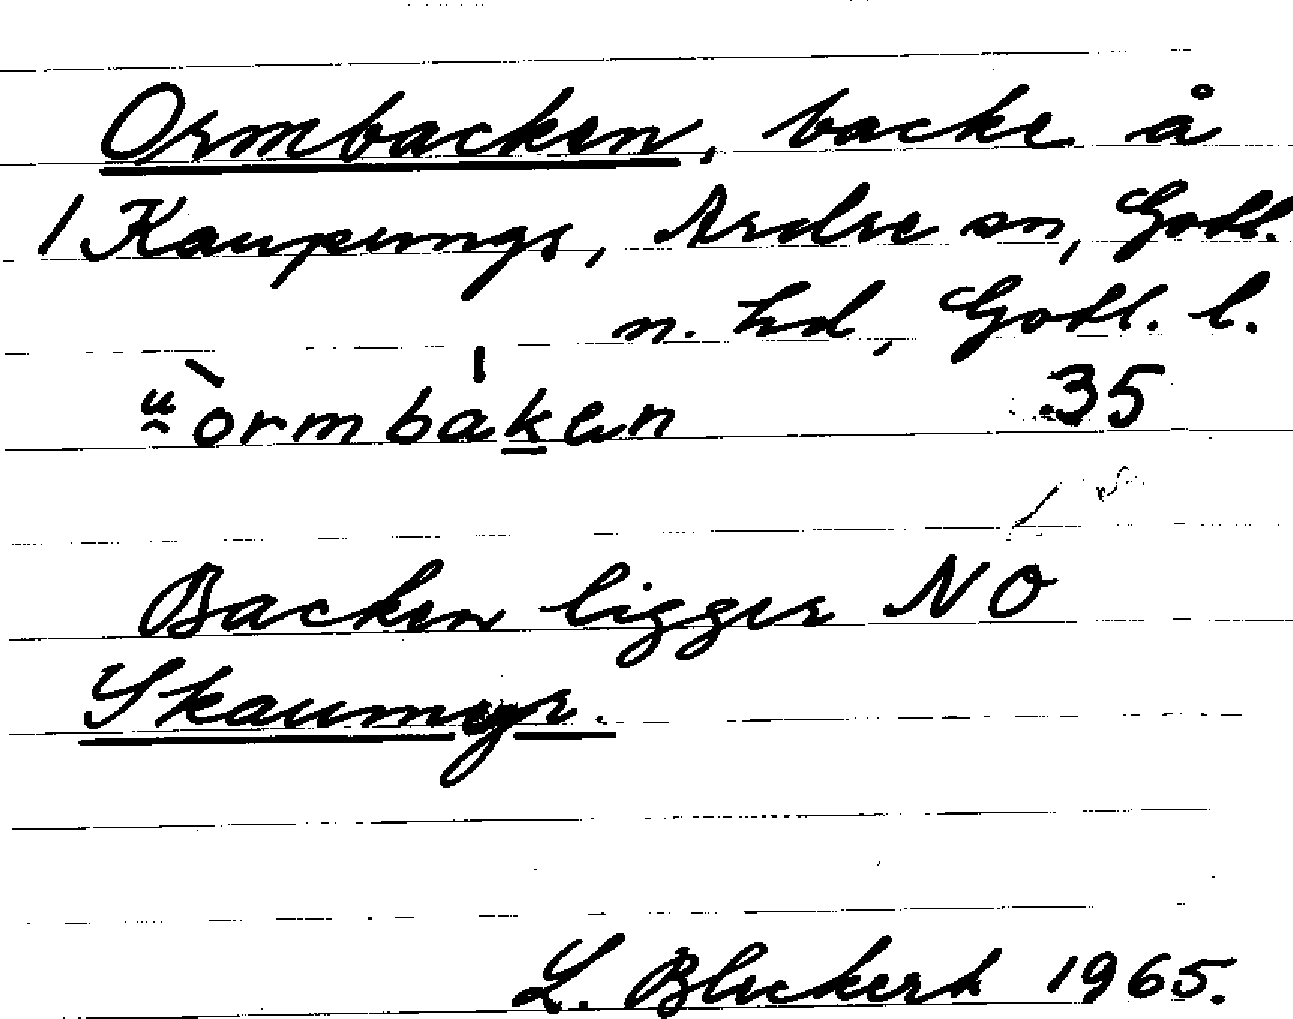 Ormbacken, backe å
1 Kaupungs, Ardre sn, Gotl.
n. hd, Gotl. l.
ormbaken 35
Backen ligger NO
Skaumyr.
L. Bleckert 1965.